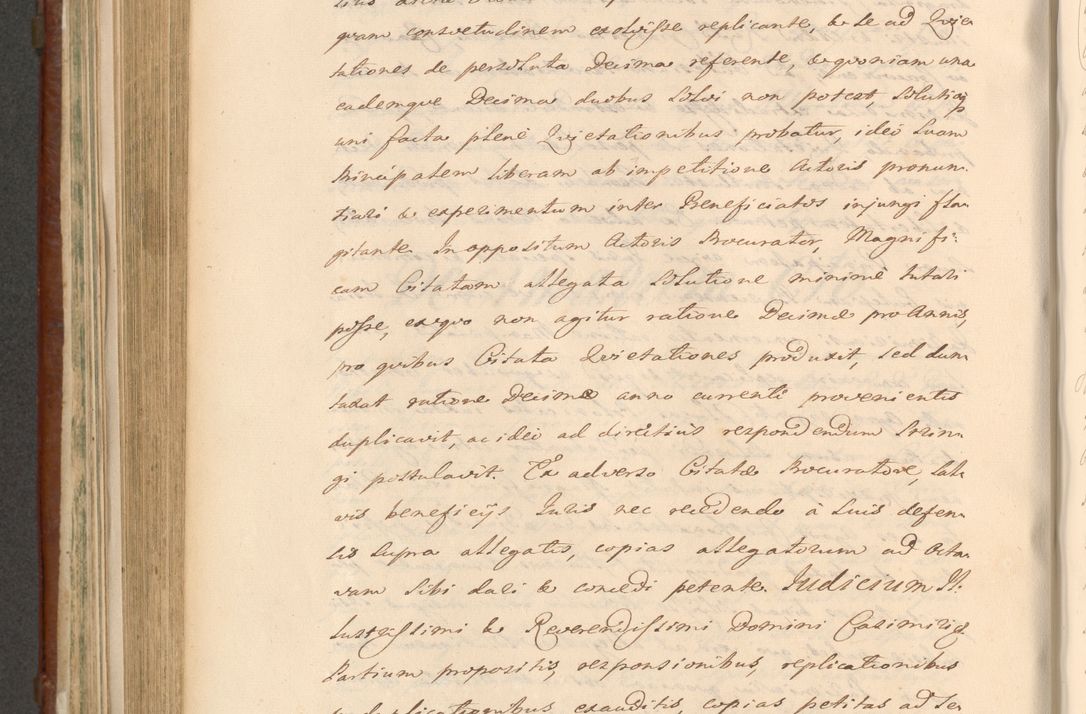 quam consvetudinem exolvisse replicante, & se ad Qvie-
tationes de persoluta Decima referente, & qvoniam una
eademqve Decima duobus solvi non potest, solutioq;
uni facta plenè Qvietationibus probatur, ideò suam
Principalem liberam ab impetitione Actoris pronun-
tiari & experimentum inter Beneficiatos injungi fla-
gitante. In oppositum Actoris Procurator, Magnifi-
cam Citatam allegata solutione minimè tutari
posse, exqvo non agitur ratione Decimæ pro Annis,
pro qvibus Citata Qvietationes produxit, sed dun-
taxat ratione Decimæ anno currenti provenientis
duplicavit, ac ideò ad directius respondendum strin-
gi postulavit. Ex adverso Citatæ Procuratore, sal-
vis beneficijs Juris nec recedendo à suis defen-
sis supra allegatis, copias allegatorum ad Octa-
vam sibi dari & concedi petente. Judicium Il-
lustrissimi & Reverendissimi Domini Casimiri &.
Partium propositis, responsionibus, replicationibus
exauditis, copias petitas ad se-